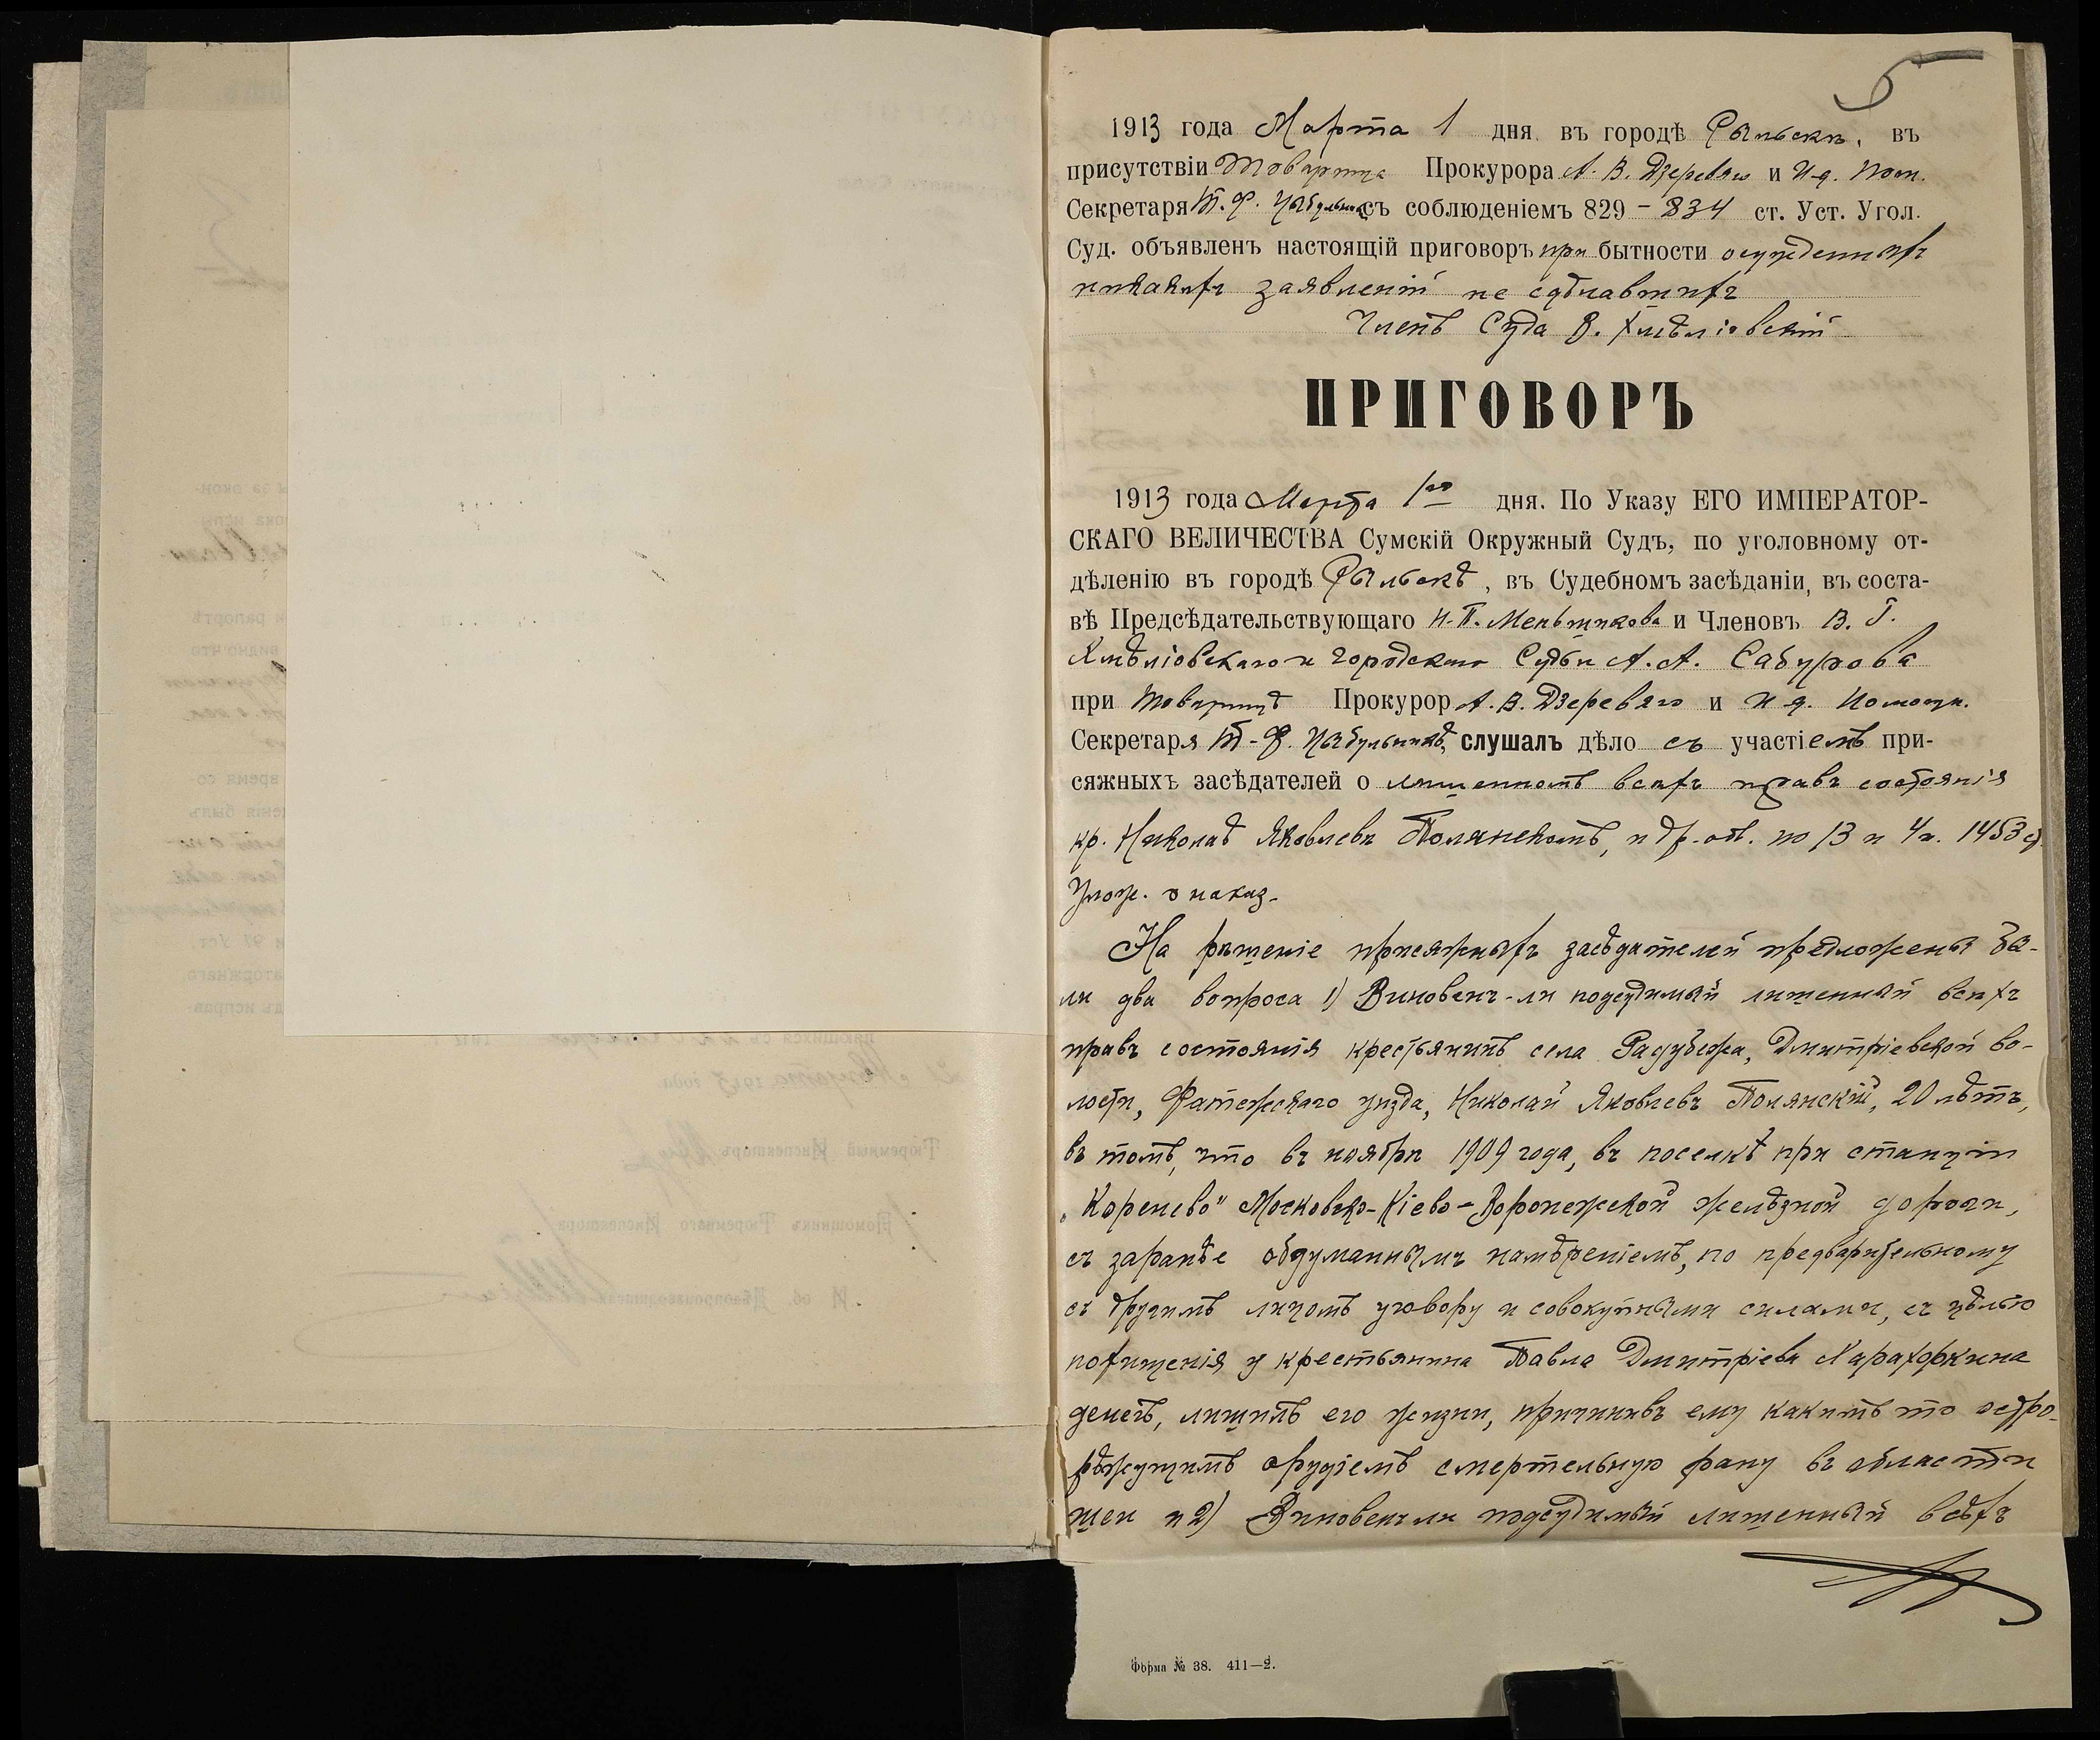 5
1913 года Марта 1 дня въ городѣ Рыльскѣ, въ
присутствіи Товарища Прокурора А. В. Дзеревяго и И. д. Пом.
Секретаря Т. Ф. съ соблюденіемъ 829 – 834 ст. Уст. Угол.
Суд. объявленъ настоящій приговоръ при бытности осужденныхъ
никакихъ заявленій не сдѣлавшихъ
Членъ Суда В. Хмѣліовскій
ПРИГОВОРЪ
1913 года Марта 1го дня. По Указу ЕГО ИМПЕРАТОР-
СКАГО ВЕЛИЧЕСТВА Сумскій Окружный Судъ, по уголовному от-
дѣленію въ городѣ Рыльскѣ, въ Судебномъ засѣданіи, въ соста-
вѣ Предсѣдательствующаго И. П. Меньшикова и Членовъ В. Г.
Хмѣліовскаго и городскаго Судьи А. А. Сабурова
при Товарищѣ Прокурор А. В. Дзеревяго и И. д. Помощн.
Секретаря Т. Ф. слушалъ дѣло съ участіемъ при-
сяжныхъ засѣдателей о лишенномъ всѣхъ правъ состоянія
кр. Николаѣ Яковлевѣ Полянскомъ, и др. об. по 13 и 4 п. 1453 ст.
Улож. о наказ.
На рѣшеніе присяжныхъ засѣдателей предложены бы-
ли два вопроса 1) Виновенъ-ли подсудимый лишенный всѣхъ
правъ состоянія крестьянинъ села Радубежа, Дмитріевской во-
лости, Фатежскаго уѣзда, Николай Яковлевъ Полянскій, 20 лѣтъ,
въ томъ, что въ ноябрѣ 1909 года, въ поселкѣ при станціи
„Коренево" Московско-Кіево-Воронежской желѣзной дороги,
съ заранѣе обдуманнымъ намѣреніемъ, по предварительному
съ другимъ лицомъ уговору и совокупными силами, съ цѣлью
похищенія у крестьянина Павла Дмитріева Карахоркина
денегъ, лишилъ его жизни, причинивъ ему какимъ то остро-
рѣжущимъ орудіемъ смертельную рану въ области
шеи и 2) Виновенъ ли подсудимый лишенный всѣхъ
Форма № 38. 411—2.